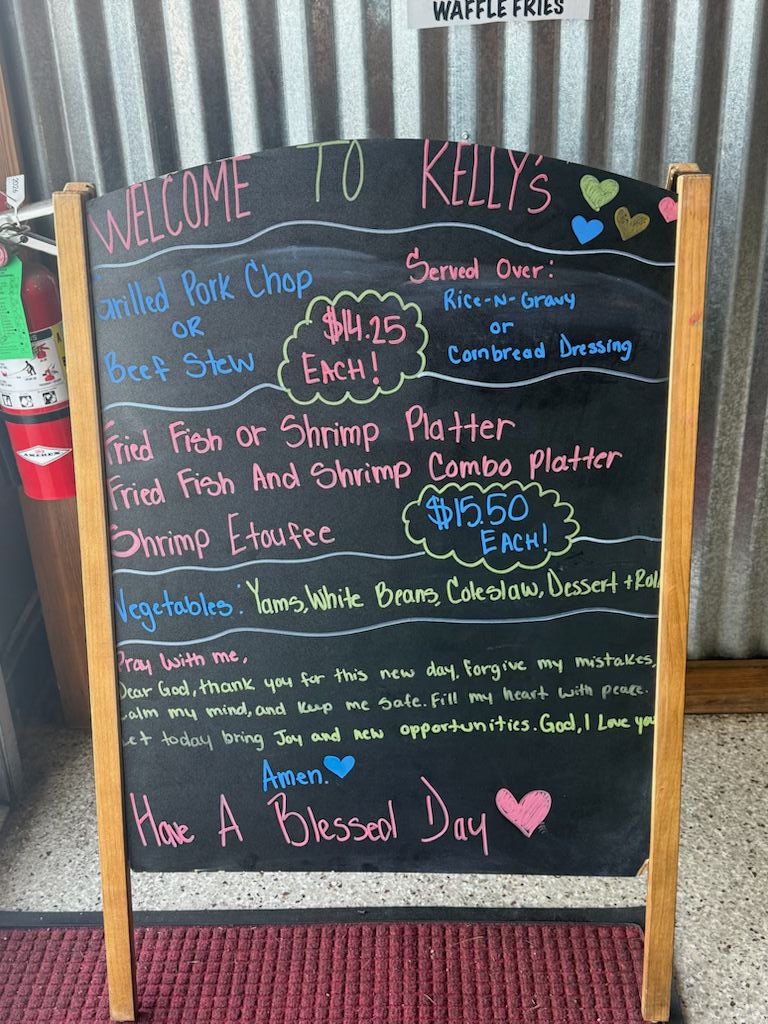 WAFFLE FRIES
WELCOME TO KELLY's
Grilled Pork Chop
OR
Beef Stew
$14.25
EACH!
Served Over:
Rice-N-Gravy
or
Cornbread Dressing
Fried Fish or Shrimp Platter
Fried Fish And Shrimp Combo Platter
Shrimp Etoufee
$15.50
EACH!
Vegetables: Yams, White Beans, Coleslaw, Dessert + Roll
Pray with me,
Dear God, thank you for this new day. Forgive my mistakes,
calm my mind, and keep me safe. Fill my heart with peace.
Let today bring Joy and new opportunities. God, I Love you
Amen.
Have A Blessed Day
2026